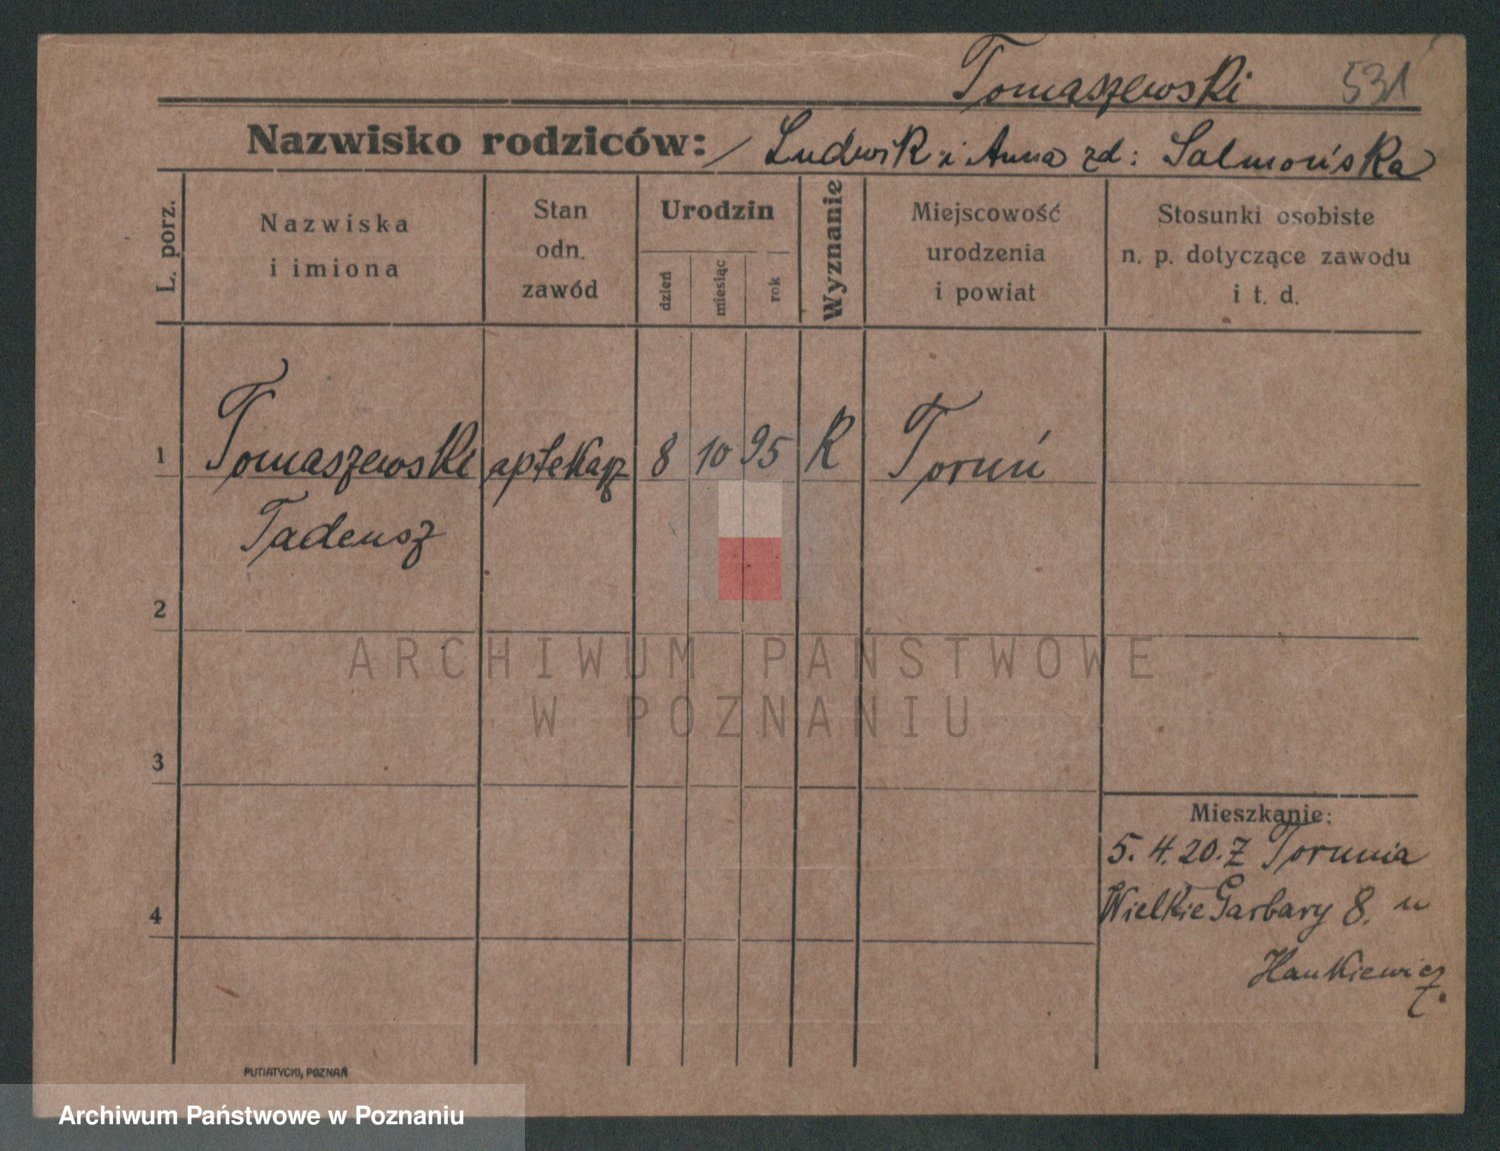 Tomaszewski 531
Nazwisko rodziców: / Ludwik i Anna zd: Salmońska
L. porz.
Nazwiska
i imiona
Stan
odn.
zawód
Urodzin
dzień
miesiąc
rok
Wyznanie
Miejscowość
urodzenia
i powiat
Stosunki osobiste
n. p. dotyczące zawodu
i t. d.
1 Tomaszewski aptekarz 8 10 95 R Toruń
Tadeusz
2
ARCHIWUM PAŃSTWOWE
W POZNANIU
3
Mieszkanie:
5. 4. 20. Z Torunia
4 Wielkie Garbary 8. u
Hankiewicz.
PUTIATYCKI, POZNAŃ
Archiwum Państwowe w Poznaniu